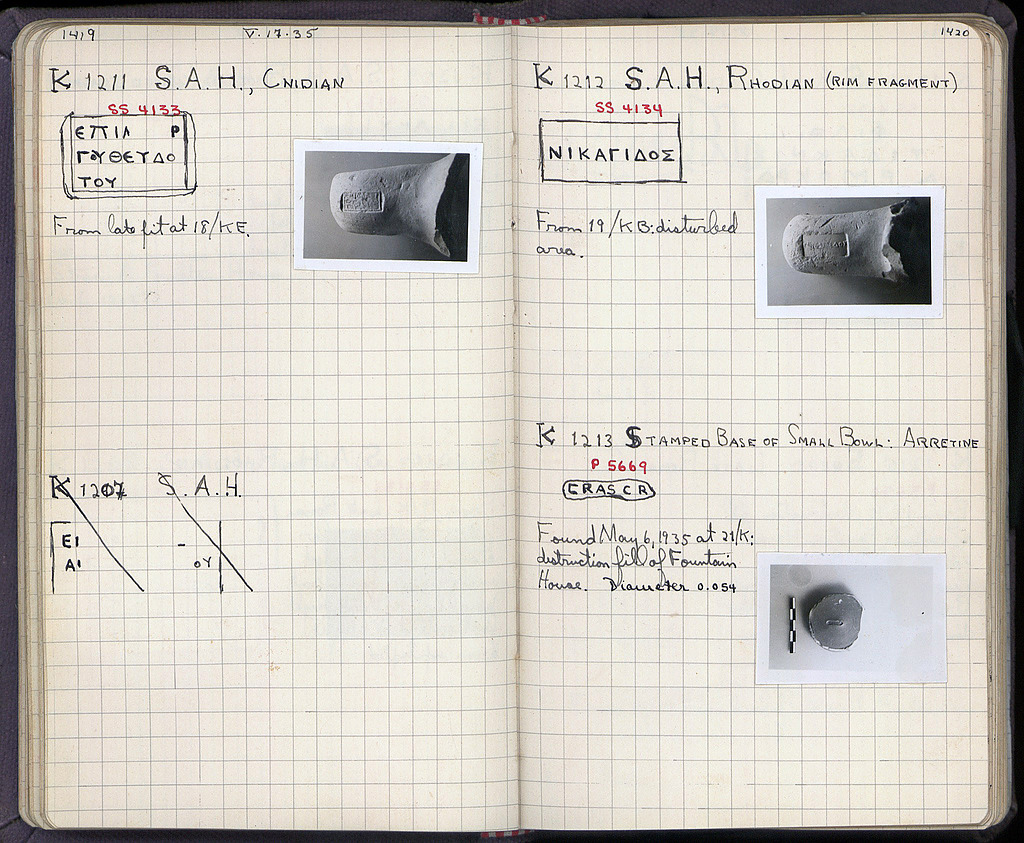 1419
V·17·35
K 1211 S.A.H., CNIDIAN
SS 4133
ΕΠΙΛ Ρ
ΓΟΥΘΕΥΔΟ
ΤΟΥ
From late pit at 18/ΚΕ.
K 1207 S.A.H.
ΕΙ –
ΑΙ ΟΥ
1420
K 1212 S.A.H., RHODIAN (RIM FRAGMENT)
SS 4134
ΝΙΚΑΓΙΔΟΣ
From 19/ΚΒ: disturbed
area.
K 1213 STAMPED BASE OF SMALL BOWL: ARRETINE
P 5669
CRASCR
Found May 6, 1935 at 21/Κ:
destruction fill of Fountain
House. Diameter 0.054